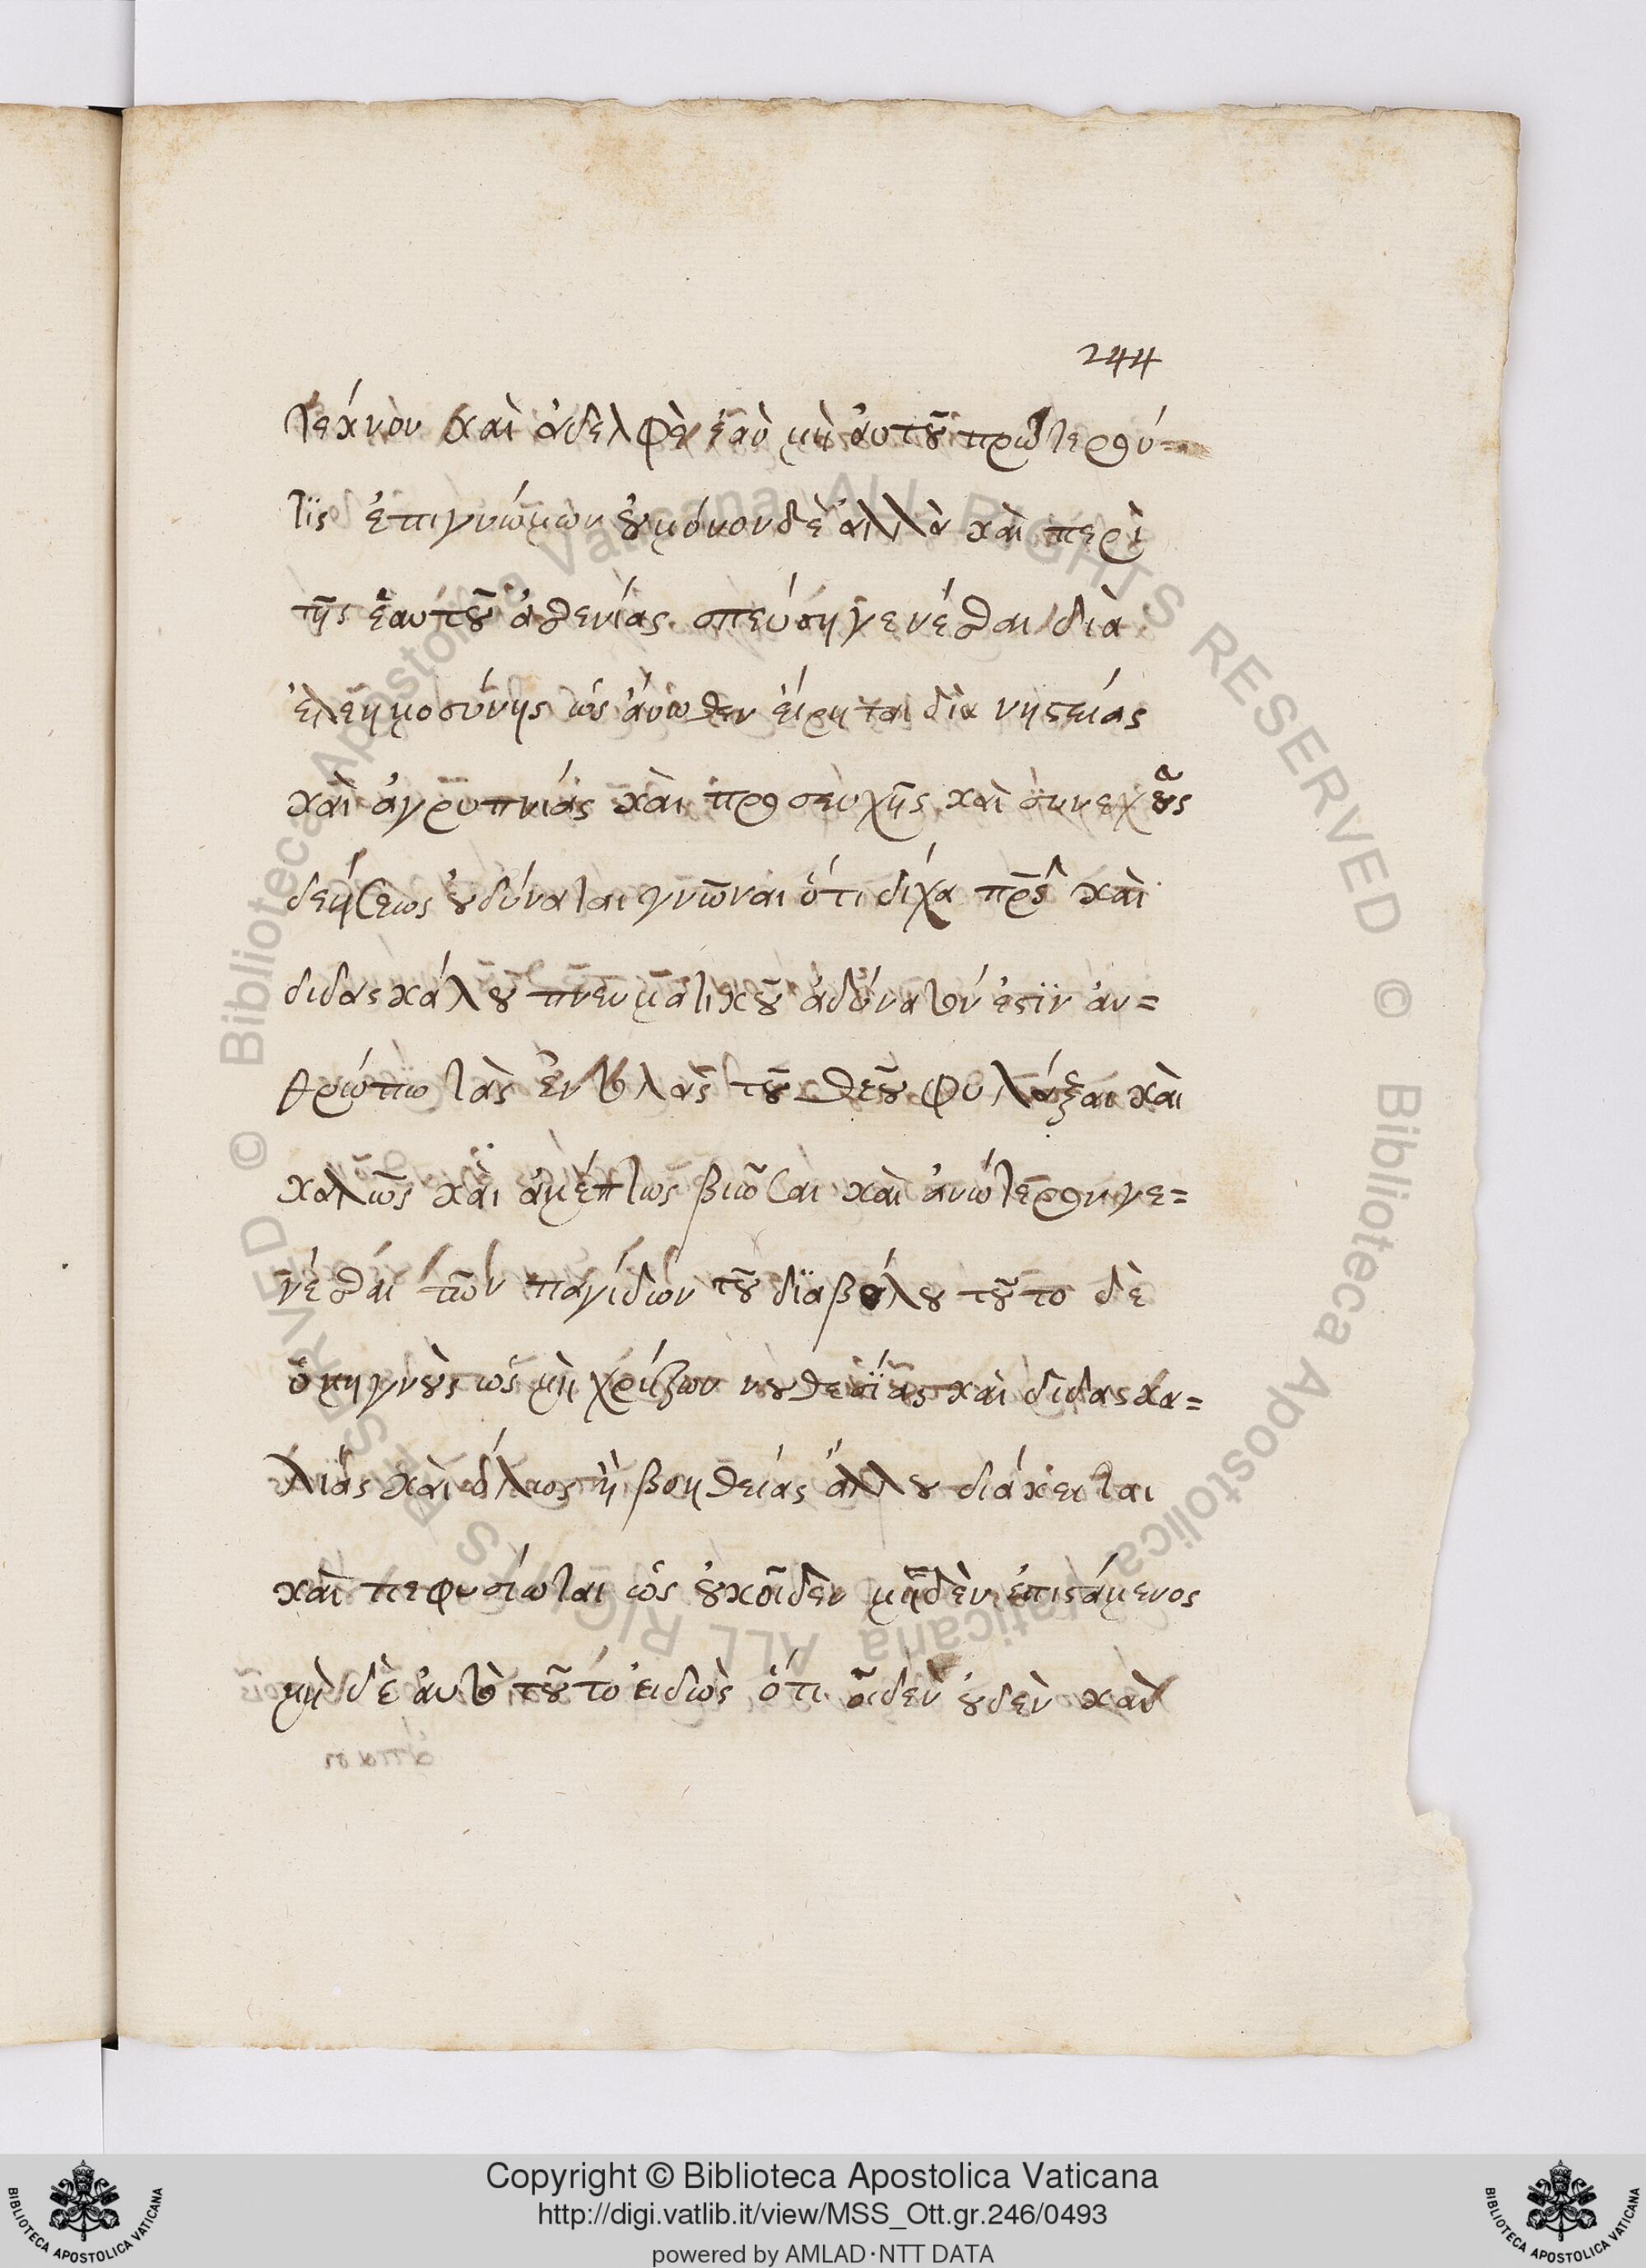 244
τέκνον καὶ ἀδελφὲ ἐὰν μὴ ἀυτοῦ πρώτερον ὁ
τὶς ἐπιγνώμων οὐ μόνον δὲ ἀλλὰ καὶ περὶ
τῆς ἑαυτοῦ ἀσθενίας σπεύση γενέσθαι διὰ
ἐλεημοσύνης ὡς ἄνωθεν ἐίρηται διὰ νηστείας
καὶ ἀγρυπνίας καὶ προσευχῆς καὶ συνεχοῦς
δεήσεως οὐ δύναται γνῶναι ὅτι δίχα πρ̅ς καὶ
διδασκάλου πνευματικοῦ ἀδύνατόν ἐστϊν ἀν=
θρώπω τὰς ἐντολὰς τοῦ θεοῦ φυλάξαι καὶ
καλῶς καὶ ἀμέπτως βιῶσαι καὶ ἀνώτερον γε=
νέσθαι τῶν παγίδων τοῦ δϊαβόλου τοῦτο δὲ
ὁ μὴ γνοὺς ὡς μὴ χρήζων νουθεσϊας καὶ διδασκα=
λίας καὶ ὅλως ἢ βοηθείας ἄλλου διάκειται
καὶ πεφυσίωται ὡς οὐκ οἶδεν μηδὲν ἐπιστάμενος
μὴ δὲ ἀυτὸ τοῦτο ειδὼς ὅτι οἶδεν οὐδὲν καὶ
Copyright © Biblioteca Apostolica Vaticana
http://digi.vatlib.it/view/MSS_Ott.gr.246/0493
powered by AMLAD·NTT DATA
BIBLIOTECA APOSTOLICA VATICANA
BIBLIOTECA APOSTOLICA VATICANA
© Biblioteca Apostolica Vaticana ALL RIGHTS RESERVED
© Biblioteca Apostolica Vaticana ALL RIGHTS RESERVED